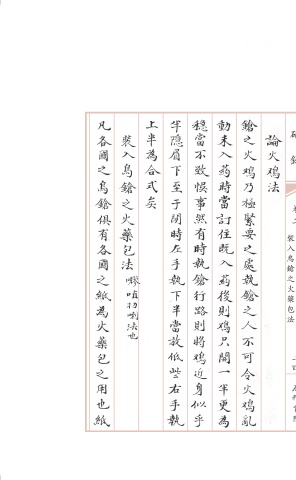 論火鷄法
鎗之火鷄乃極緊要之處執鎗之人不可令火鷄亂
動未入葯時當訂住既入葯後則鷄只開一半更為
穩當不致悞事然有時執鎗行路則將鷄近身似乎
半隱肩下至于閉時左手執下半當放低些右手執
上半為合式矣
裝入鳥鎗之火藥包法
凡各國之鳥鎗俱有各國之紙為火藥包之用也紙
裝入鳥鎗之火藥包法